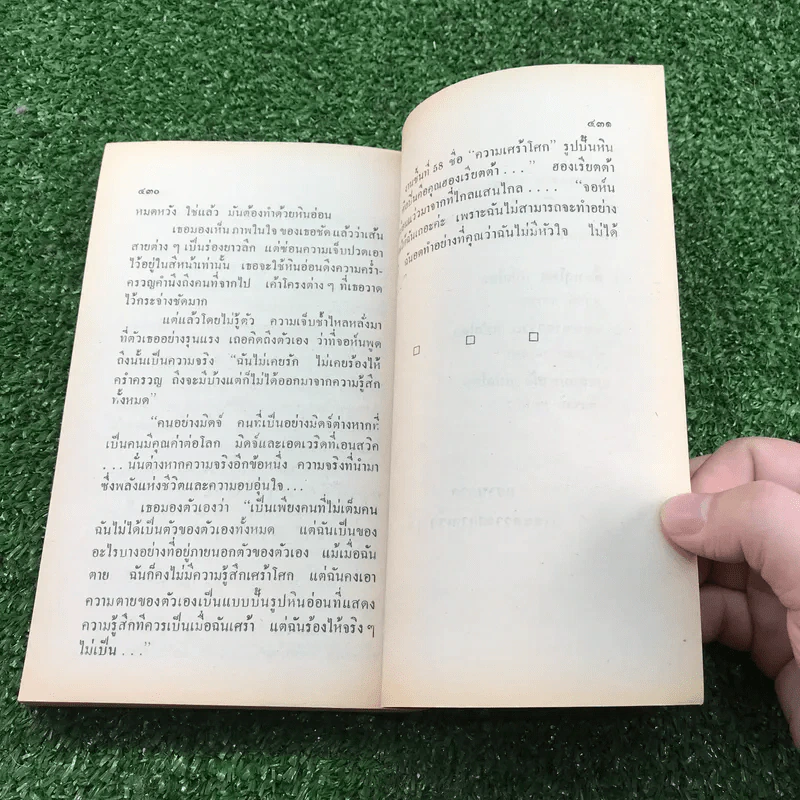 ๔๓๐
หมดหวัง ใช่แล้ว มันต้องทำด้วยหินอ่อน
เธอมองเห็น ภาพในใจ ของเธอชัด แล้วว่าเส้น
สายต่าง ๆ เป็นร่องยาวลึก แต่ซ่อนความเจ็บปวดเอา
ไว้อยู่ในสีหน้าเท่านั้น เธอจะใช้หินอ่อนดึงความคร่ำ-
ครวญคำนึงถึงคนที่จากไป เค้าโครงต่าง ๆ ที่เธอวาด
ไว้กระจ่างชัดมาก
แต่แล้วโดยไม่รู้ตัว ความเจ็บช้ำไหลหลั่งมา
ที่ตัวเธออย่างรุนแรง เถอคิดถึงตัวเอง ว่าที่จอห์นพูด
ถึงนั้นเป็นความจริง “ฉันไม่เคยรัก ไม่เคยร้องไห้
คร่ำครวญ ถึงจะมีบ้างแต่ก็ไม่ได้ออกมาจากความรู้สึก
ทั้งหมด”
“คนอย่างมิดจ์ คนที่เป็นอย่างมิดจ์ต่างหากที่
เป็นคนมีคุณค่าต่อโลก มิดจ์และเอดเวริดที่เอนสวิค
... นั่นต่างหากความจริงอีกข้อหนึ่ง ความจริงที่นำมา
ซึ่งพลังแห่งชีวิตและความอบอุ่นใจ ...
เธอมองตัวเองว่า “เป็นเพียงคนที่ไม่เต็มคน
ฉันไม่ได้เป็นตัวของตัวเองทั้งหมด แต่ฉันเป็นของ
อะไรบางอย่างที่อยู่ภายนอกตัวของตัวเอง แม้เมื่อฉัน
ตาย ฉันก็คงไม่มีความรู้สึกเศร้าโศก แต่ฉันคงเอา
ความตายของตัวเองเป็นแบบปั้นรูปหินอ่อนที่แสดง
ความรู้สึกที่ควรเป็นเมื่อฉันเศร้า แต่ฉันร้องไห้จริง ๆ
ไม่เป็น ...”
๔๓๑
งานชิ้นที่ 58 ชื่อ “ความเศร้าโศก” รูปปั้นหิน
คือคุณฮองเรียตต้า ...” ฮองเรียตต้า
แว่วมาจากที่ไกลแสนไกล .... “จอห์น
เถอะค่ะ เพราะฉันไม่สามารถจะทำอย่าง
ทำอย่างที่คุณว่าฉันไม่มีหัวใจ ไม่ได้